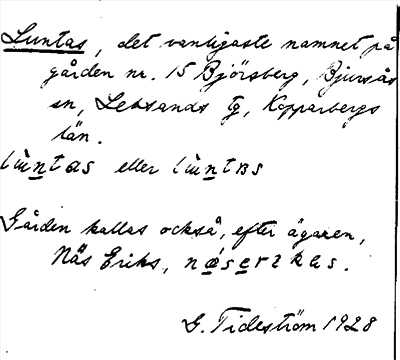 Luntas, det vanligaste namnet på
gården nr. 15 Björsberg, Bjursås
sn, Leksands tg, Kopparbergs
län.
lùntas eller lùntɐs
Gården kallas också, efter ägaren,
Näs Eriks, nǿserɪkes.
G. Tideström 1928